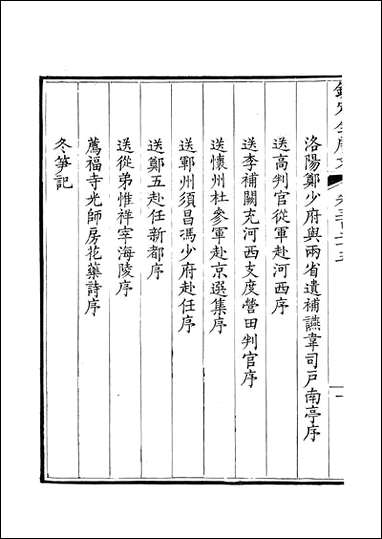 洛陽鄭少府與兩省遺補讌韋司戸南亭序
送高判官從軍赴河西序
送李補闕充河西支度營田判官序
送懷州杜參軍赴京選集序
送鄆州須昌馮少府赴任序
送鄭五赴任新都序
送從弟惟祥宰海陵序
薦福寺光師房花藥詩序
冬笋記